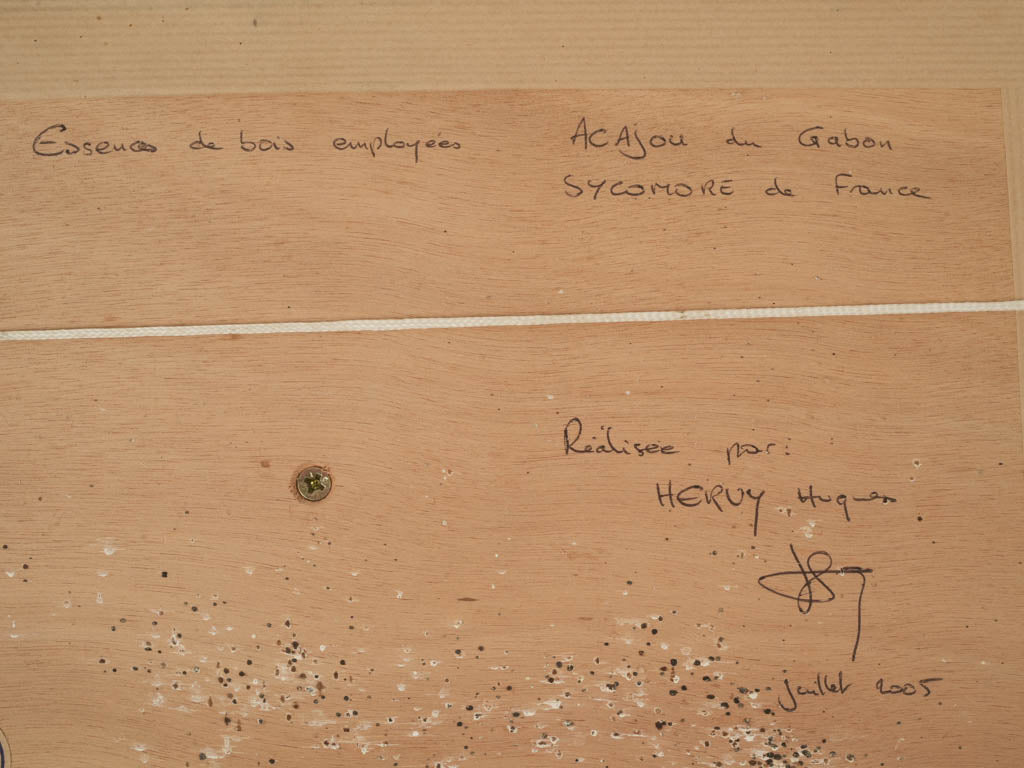 Essences de bois employées
ACAJOU du Gabon
SYCOMORE de France
Réalisée par:
HERVY Hugues
juillet 2005